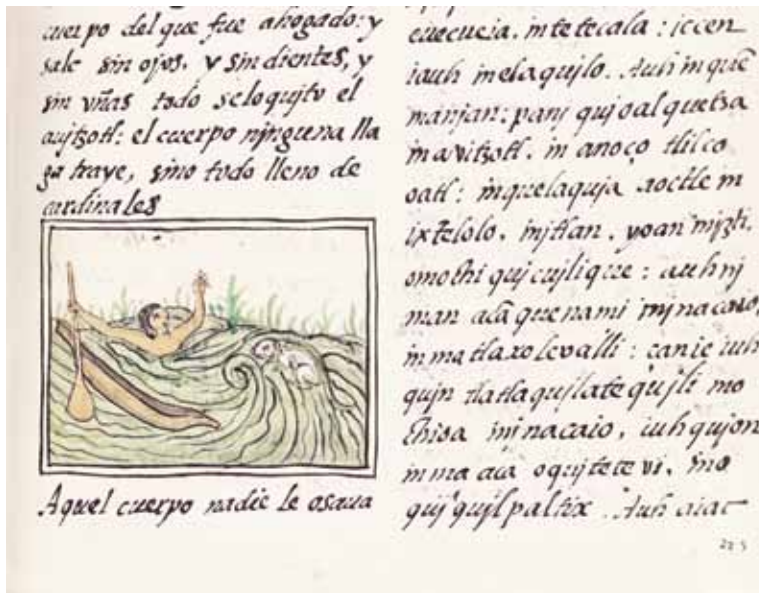 cuerpo del que fue ahogado: y
sale sin ojos, y sin dientes, y
sin vñas todo selo quito el
auitzotl: el cuerpo njnguna lla
ga traye, sino todo lleno de
cardinales
Aquel cuerpo nadie le osaua
cuecueia, in tetecala: iccen
iauh in elaquilo. Auh in quē
manjan: panj qujoalquetza
in avitzotl, in anoço tlilco
oatl: in quelaquja aoctle in
ixtelolo, injtlan, yoan injzti,
omochi qujcujlique: auh nj
man acā quenami injnacaio,
in ma tlaxolevalli: çanic iuh
qujn tlatlaqujlatequjli mo
chioa injnacaio, iuhqujon
in ma aca oqujtetevi, mo
quj'qujlpaltix. Auh aiac